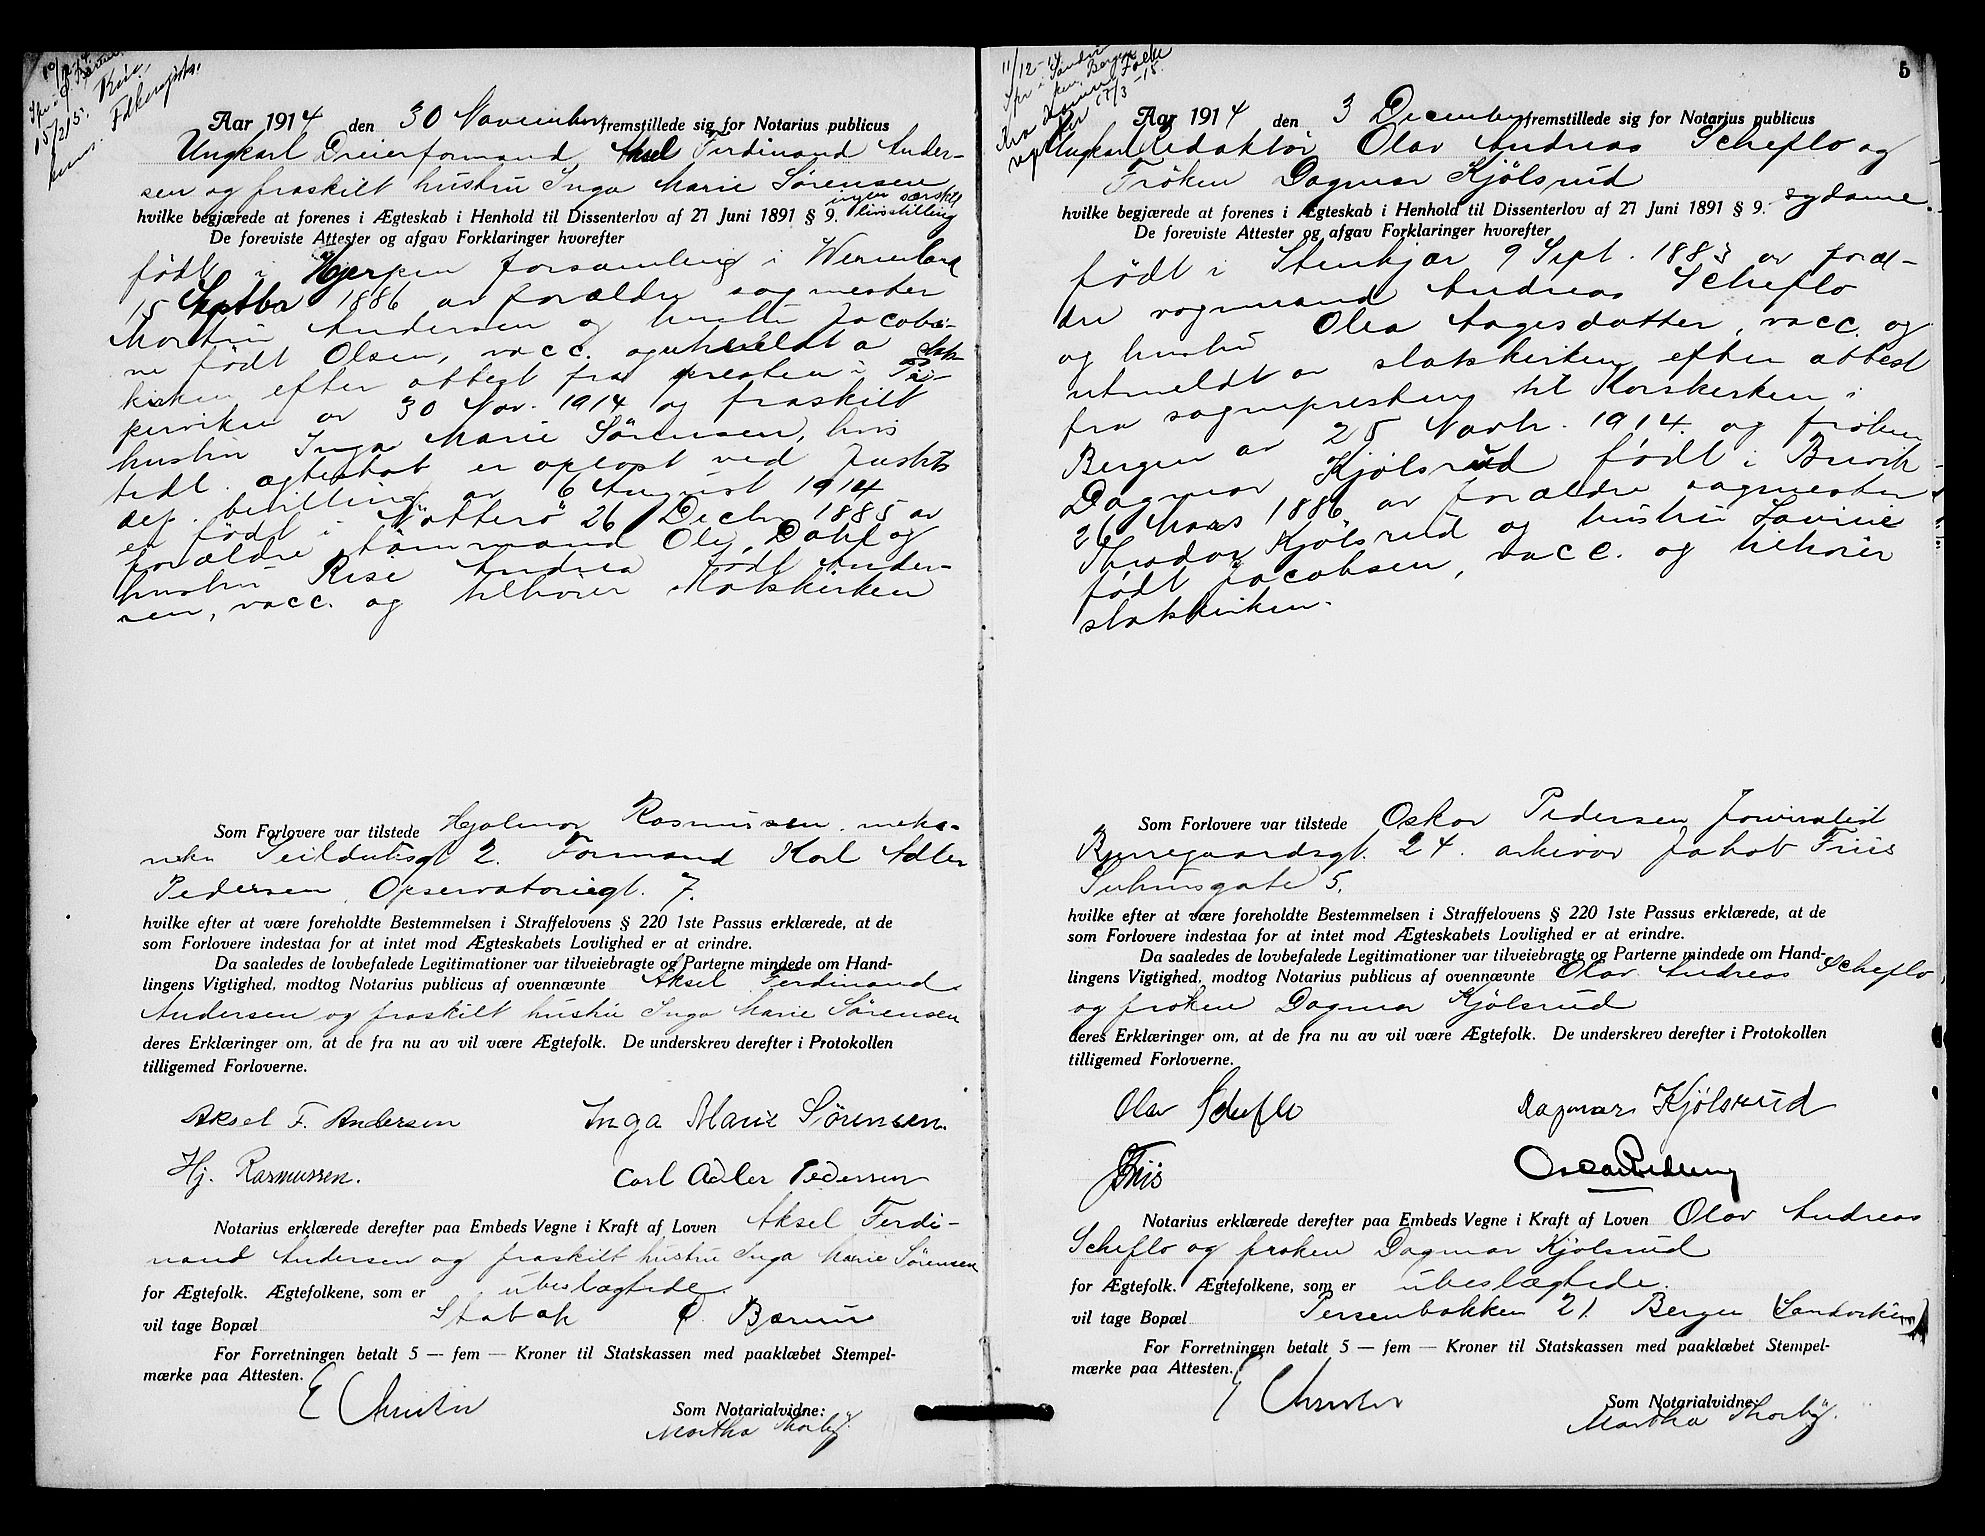 Aar 1914 den 30 November fremstillede sig for Notarius publicus
Ungkarl Dreierformand, Aksel Ferdinand Ander-
sen og fraskilt hustru Inga Marie Sørensen
ingen særskilt
livsstilling
hvilke begjærede at forenes i Ægteskab i Henhold til Dissenterlov af 27 Juni 1891 § 9.
De foreviste Attester og afgav Forklaringer hvorefter
født i forsamling i Wermland
15 Septbr 1886 av forældre sagmester
Martin Andersen og hustru Jacobi-
ne født Olsen, vacc. og utmeldt a stats
kirken efter attest fra presten i Pi-
perviken av 30 Nov. 1914 og fraskilt
hustru Inga Marie Sørensen, hvis
tidl. ægteskab er opløst ved Justits
dep. bevilling av 6 August 1914
er født i Nøtterø 26 Decbr 1885 av
forældre tømmand Ole Dahl og
hustru Andrea født Ander-
sen, vacc. og tilhører statskirken
Som Forlovere var tilstede Hjalmar Rasmussen. meka-
niker Seilduksgt 2. Formand Karl Adler
Pedersen, Opservatoriegt. 7.
hvilke efter at være foreholdte Bestemmelsen i Straffelovens § 220 1ste Passus erklærede, at de
som Forlovere indestaa for at intet mod Ægteskabets Lovlighed er at erindre.
Da saaledes de lovbefalede Legitimationer var tilveiebragte og Parterne mindede om Hand-
lingens Vigtighed, modtog Notarius publicus af ovennævnte Aksel Ferdinand
Andersen og fraskilt hustru Inga Marie Sørensen
deres Erklæringer om, at de fra nu av vil være Ægtefolk. De underskrev derefter i Protokollen
tilligemed Forloverne.
Aksel F. Andersen Inga Marie Sørensen.
Hj. Rasmussen. Carl Adler Pedersen
Notarius erklærede derefter paa Embeds Vegne i Kraft af Loven Aksel Ferdi-
nand Andersen og fraskilt hustru Inga Marie Sørensen
for Ægtefolk. Ægtefolkene, som er ubeslægtede.
vil tage Bopæl Stabæk Bærum
For Forretningen betalt 5 — fem — Kroner til Statskassen med paaklæbet Stempel-
mærke paa Attesten.
E Christie
Som Notarialvidne:
Martha Thorby.
5
Aar 1914 den 3 December fremstillede sig for Notarius publicus
Ungkarl Redaktør Olav Andreas Scheflo og
Frøken Dagmar Kjölsrud sydame.
hvilke begjærede at forenes i Ægteskab i Henhold til Dissenterlov af 27 Juni 1891 § 9.
De foreviste Attester og afgav Forklaringer hvorefter
født i Stenkjær 9 Sept. 1883 av foræl-
dre vognmand Andreas Scheflo
og hustru Olea Aagesdatter, vacc. og
utmeldt av statskirken efter attest
fra sogneprestens til Korskirken i
Bergen av 25 Novbr. 1914. og frøken
Dagmar Kjölsrud født i
26 Mars 1886 av forældre sagmester
Theodor Kjölsrud og hustru Lavinie
født Jacobsen, vacc. og tilhører
statskirken.
Som Forlovere var tilstede Oskar Pedersen Journalist
Bjerregaardsgt. 24. arkivar Jakob Friis
Suhmsgate 5.
hvilke efter at være foreholdte Bestemmelsen i Straffelovens § 220 1ste Passus erklærede, at de
som Forlovere indestaa for at intet mod Ægteskabets Lovlighed er at erindre.
Da saaledes de lovbefalede Legitimationer var tilveiebragte og Parterne mindede om Hand-
lingens Vigtighed, modtog Notarius publicus af ovennævnte Olav Andreas Scheflo
og frøken Dagmar Kjölsrud
deres Erklæringer om, at de fra nu av vil være Ægtefolk. De underskrev derefter i Protokollen
tilligemed Forloverne.
Olav Scheflo Dagmar Kjölsrud
JFriis Oscar Pedersen
Notarius erklærede derefter paa Embeds Vegne i Kraft af Loven Olav Andreas
Scheflo og frøken Dagmar Kjölsrud
for Ægtefolk. Ægtefolkene, som er ubeslægtede.
vil tage Bopæl Persenbakken 21 Bergen (Sandviken)
For Forretningen betalt 5 — fem — Kroner til Statskassen med paaklæbet Stempel-
mærke paa Attesten.
E Christie
Som Notarialvidne:
Martha Thorby.